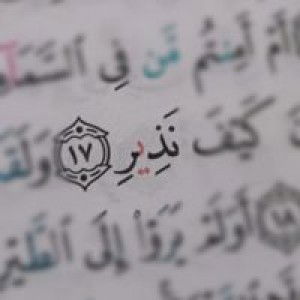 أَمْ أَمِنتُم مَّن فِي ٱلسَّمَا
كَيْفَ نَذِيرِ ١٧ وَلَقَ
أَوَلَمْ يَرَوْا۟ إِلَى ٱلطَّيْرِ